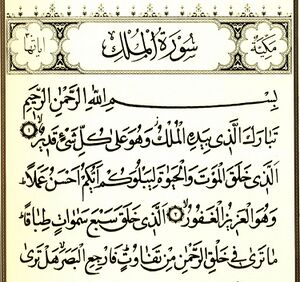 مكية سورة الملك آياتها
بِسْمِ اللهِ الرَّحْمٰنِ الرَّحِيمِ
تَبَارَكَ الَّذِي بِيَدِهِ الْمُلْكُ وَهُوَ عَلَى كُلِّ شَيْءٍ قَدِيرٌ ١
الَّذِي خَلَقَ الْمَوْتَ وَالْحَيٰوةَ لِيَبْلُوَكُمْ أَيُّكُمْ أَحْسَنُ عَمَلًا
وَهُوَ الْعَزِيزُ الْغَفُورُ ٢ الَّذِي خَلَقَ سَبْعَ سَمٰوَاتٍ طِبَاقًا
مَا تَرَى فِي خَلْقِ الرَّحْمٰنِ مِنْ تَفَاوُتٍ فَارْجِعِ الْبَصَرَ هَلْ تَرَى